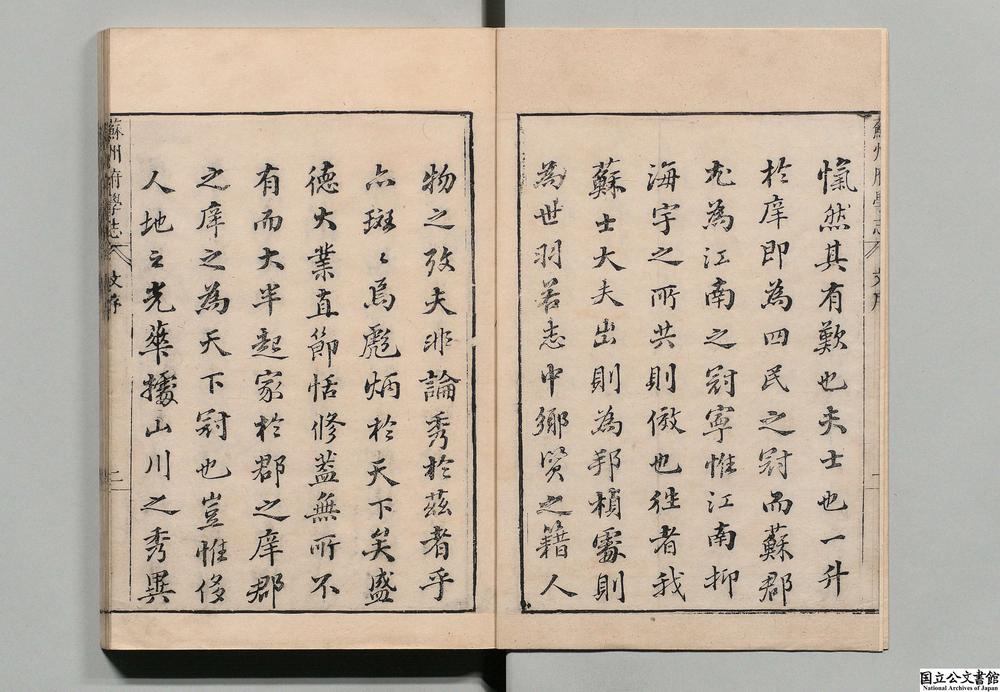 蘇州府學志
愾然其有歎也夫士也一升
於庠即為四民之冠而蘇郡
尤為江南之冠寧惟江南抑
海宇之所共則倣也徃者我
蘇士大夫出則為邦楨處則
為世羽若志中鄉賢之籍人
物之攷夫非論秀於茲者乎
亦斑〻焉彪炳於天下矣盛
德大業直節恬修葢無所不
有而大半起家於郡之庠郡
之庠之為天下冠也豈惟侈
人地之光華擅山川之秀異
蘇州府學志 序 二
国立公文書館
National Archives of Japan